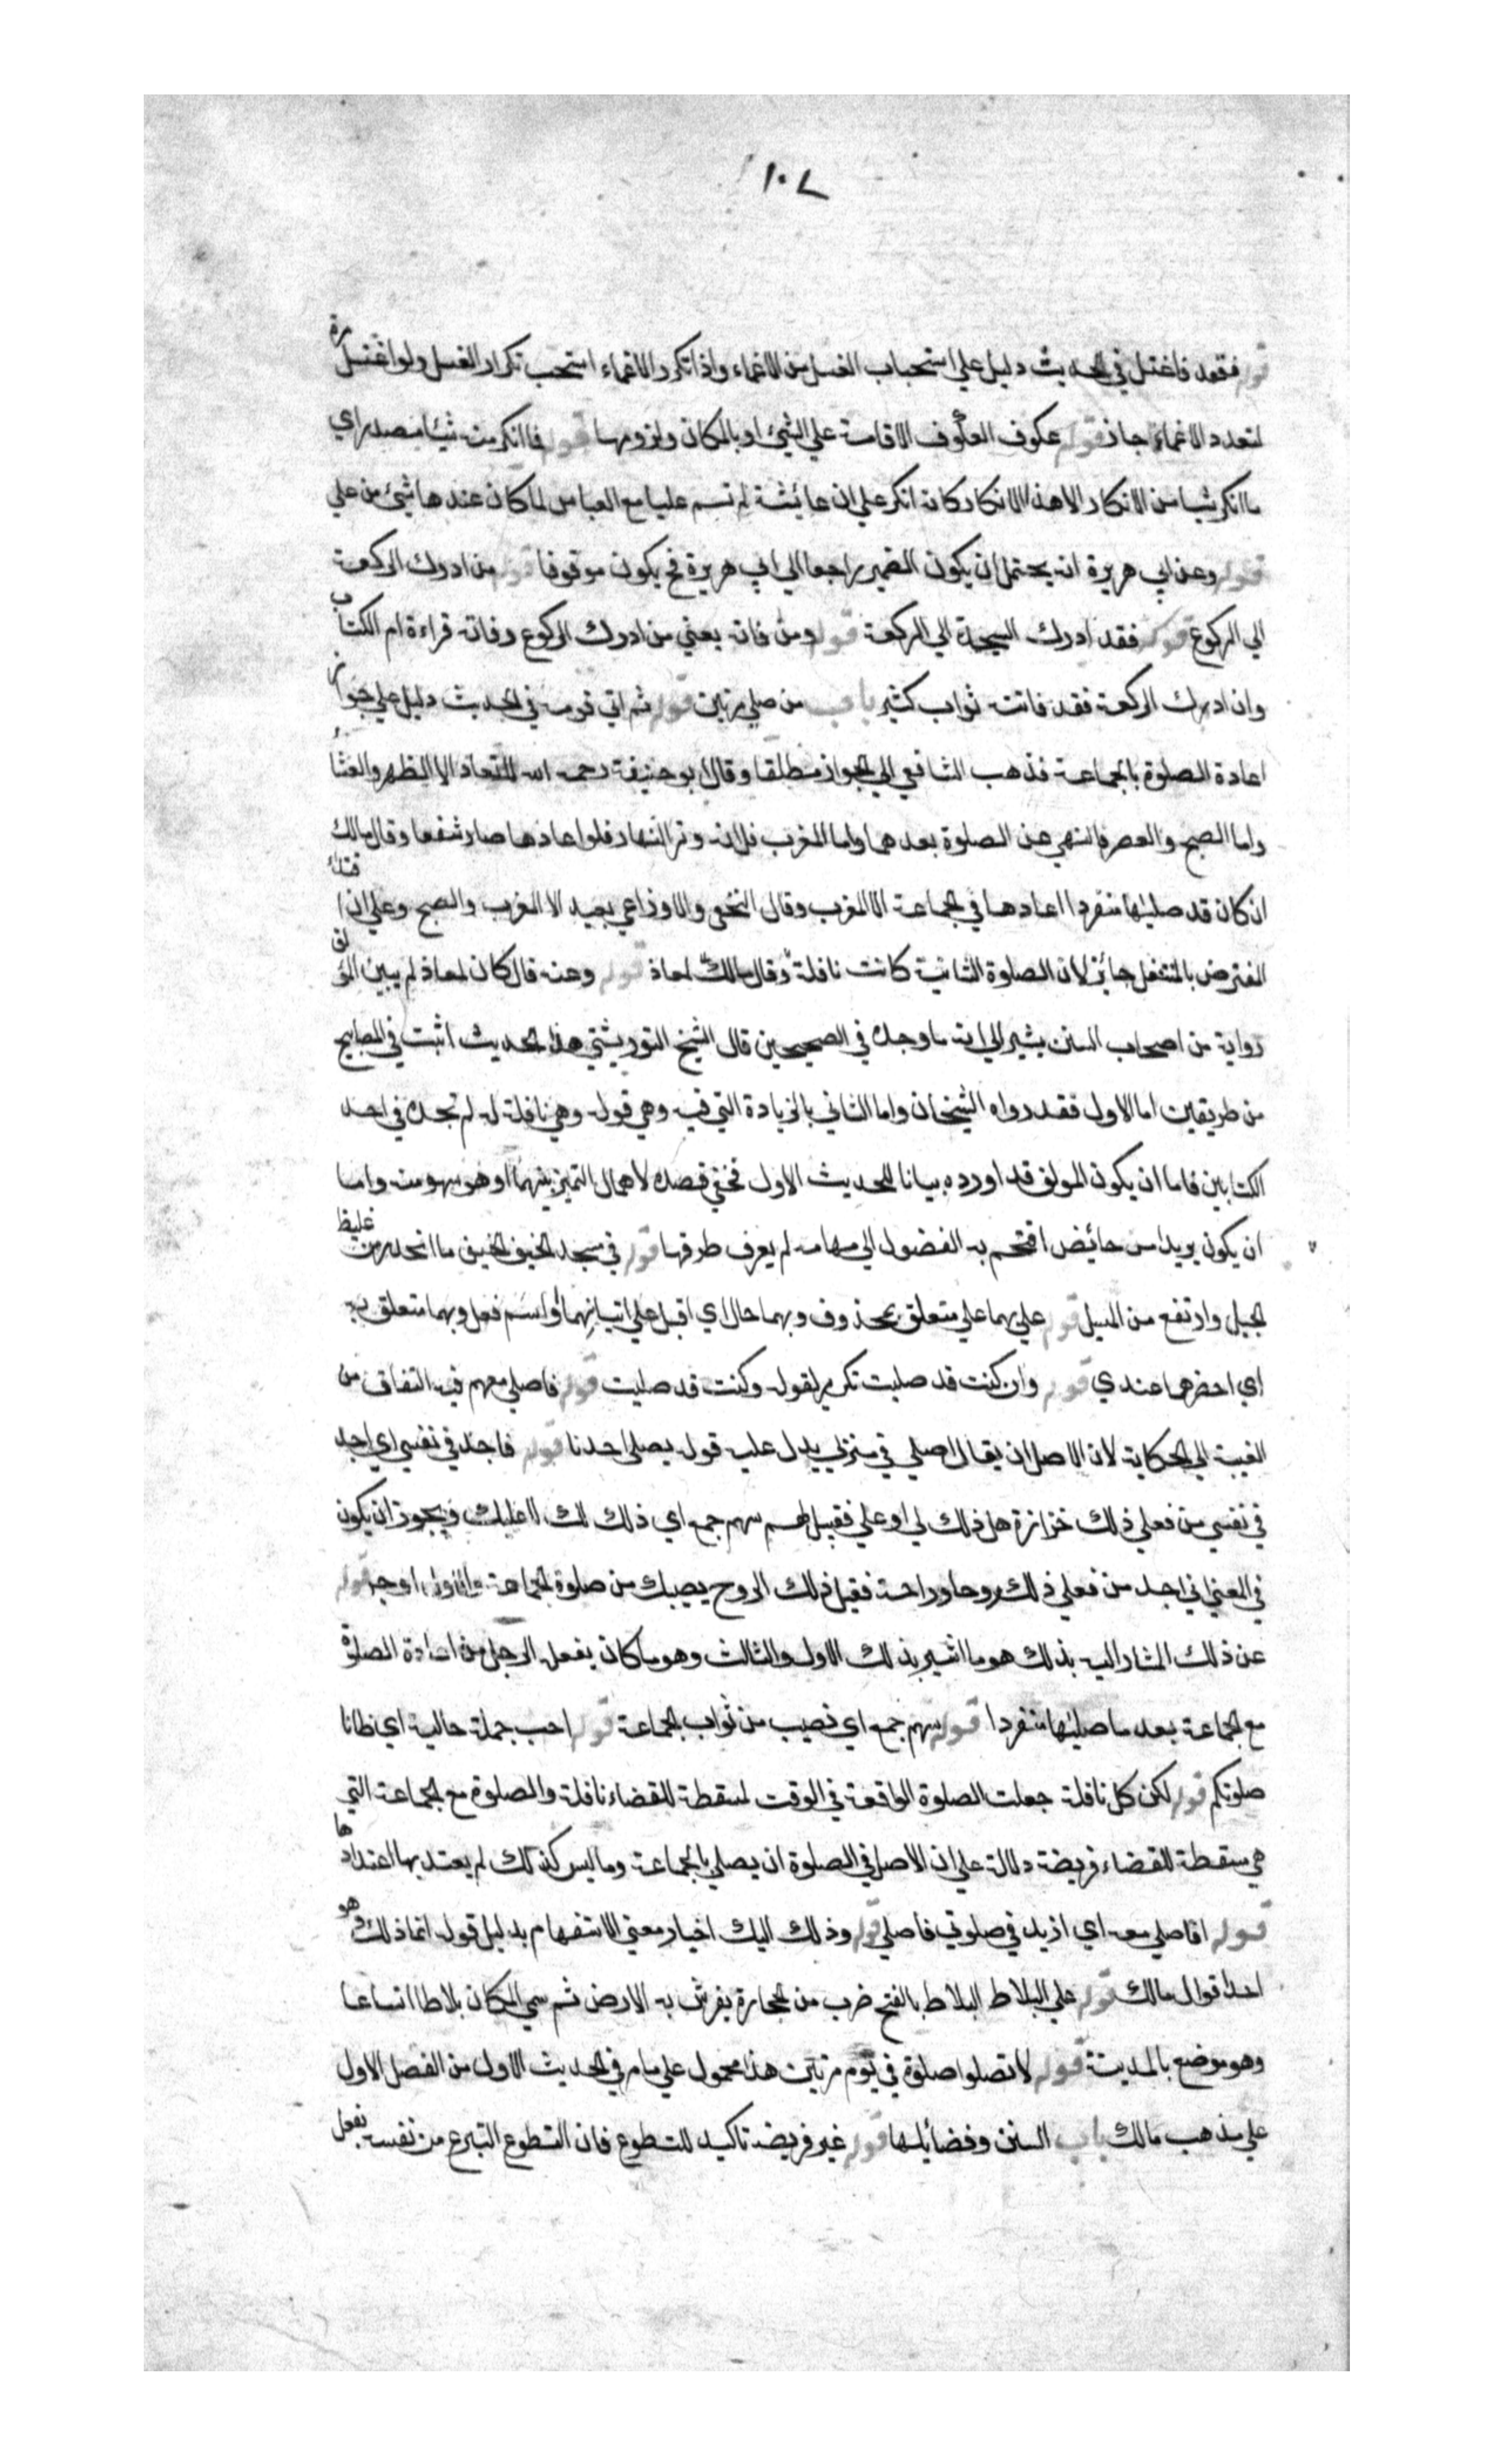 ١٠٧
قوله فقعد فاغتسل في الحديث دليل علي استحباب الغسل من الاغماء واذا تكرر الاغماء استحب تكرار الغسل ولو اغتسل مرة
لتعدد الاغماء جاز قوله عكوف العكوف الاقامة علي الشيئ او بالمكان ولزومها قوله فما انكر منه شيئا مصدر اي
ما انكر شيئا من الانكار الا هذا الانكار كانه انكر علي ان عائشة لم تسم عليا مع العباس لما كان عندها شيئ من علي
قوله وعن ابي هريرة انه يحتمل ان يكون الضمير راجعا الي ابي هريرة فح يكون موقوفا قوله من ادرك الركعة
الي الركوع قوله فقد ادرك السجدة الي الركعة قوله ومن فاته يعني من ادرك الركوع وفاته قراءة ام الكتاب
وان ادرك الركعة فقد فاتته ثواب كثير باب من صلي مرتين قوله ثم اتي قومه في الحديث دليل علي جواز
اعادة الصلوة بالجماعة فذهب الشافعي الي الجواز مطلقا وقال ابو حنيفة رحمه الله لا تعاد الا الظهر والعشاء
واما الصبح والعصر فللنهي عن الصلوة بعدهما واما المغرب فلانه وتر النهار فلو اعادها صار شفعا وقال مالك
ان كان قد صليٰها منفردا اعادها في الجماعة الا المغرب وقال النخعي والاوزاعي يعيد الا المغرب والصبح وعلي ان اقتداء
المفترض بالمتنفل جائز لان الصلوة الثانية كانت نافلة وقال مالك لمعاذ قوله وعنه قال كان لمعاذ لم يبين المؤلف
رواية من اصحاب السنن يشير الي انه ما وجده في الصحيحين قال الشيخ التوربشتي هذا الحديث اثبت في المصابيح
من طريقين اما الاول فقد رواه الشيخان واما الثاني بالزيادة التي فيه وهي قوله وهي نافلة له لم نجده في احد
الكتابين فاما ان يكون المولف قد اورده بيانا للحديث الاول فخفي قصده لاهمال التميز بينهما او هو سهو منه واما
ان يكون يريدا من حائض اقتحم به الفضول الي مهامه لم يعرف طرقها قوله في مسجد الخيف الخيف ما انحدر من غليظ
الجبل وارتفع من المسيل قوله علي بهما علي متعلق بمحذوف وبهما حال اي اقبل علي اتيا بهما او اسم فعل وبهما متعلق به
اي احضرهما عندي قوله وان كنت قد صليت تكرير لقوله وكنت قد صليت قوله فاصلي معهم فيه التفات من
الغيبة الي الحكاية لان الاصل ان يقال اصلي في منزلي يدل عليه قوله يصلي احدنا قوله فاجد في نفسي اي اجد
في نفسي من فعلي ذلك حزازة هل ذلك لي او علي فقيل لهم سهم جمع اي ذلك لك لا عليك ويجوز ان يكون
في المعني اني اجد من فعلي ذلك روحا وراحة فقيل ذلك الروح يصيبك من صلوة الجماعة والاول اوجه قوله
عن ذلك المشار اليه بذلك هو ما اشير بذلك الاول والثالث وهو ما كان يفعل الرجل من اعادة الصلوة
مع الجماعة بعد ما صليٰها منفردا قوله سهم جمع اي نصيب من ثواب الجماعة قوله احب جملة حالية اي ظانا
صلوتكم قوله لكن كل نافلة جعلت الصلوة الواقعة في الوقت لمسقطة للقضاء نافلة والصلوة مع الجماعة التي
هي مسقطة للقضاء فريضة دلالة علي ان الاصل في الصلوة ان يصلي بالجماعة وما ليس كذلك لم يعتد بها اعتدادها
قوله افاصلي معه اي ازيد في صلوتي فاصلي قوله وذلك اليك اخبار معني الاستفهام بدليل قوله انما ذلك وهو
احد اقوال مالك قوله علي البلاط البلاط بالفتح ضرب من الحجارة يفرش به الارض ثم سمي المكان بلاطا اتساعا
وهو موضع بالمدينة قوله لا تصلوا صلوة في يوم مرتين هذا محمول علي ما مر في الحديث الاول من الفصل الاول
علي مذهب مالك باب السنن وفضائلها قوله غير فريضة تاكيد للتطوع فان التطوع التبرع من نفسه بفعل